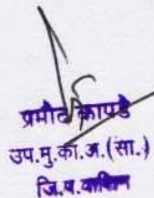 प्रमोद कापडे
उप.मु.का.अ.(सा.)
जि.प.वाशिम